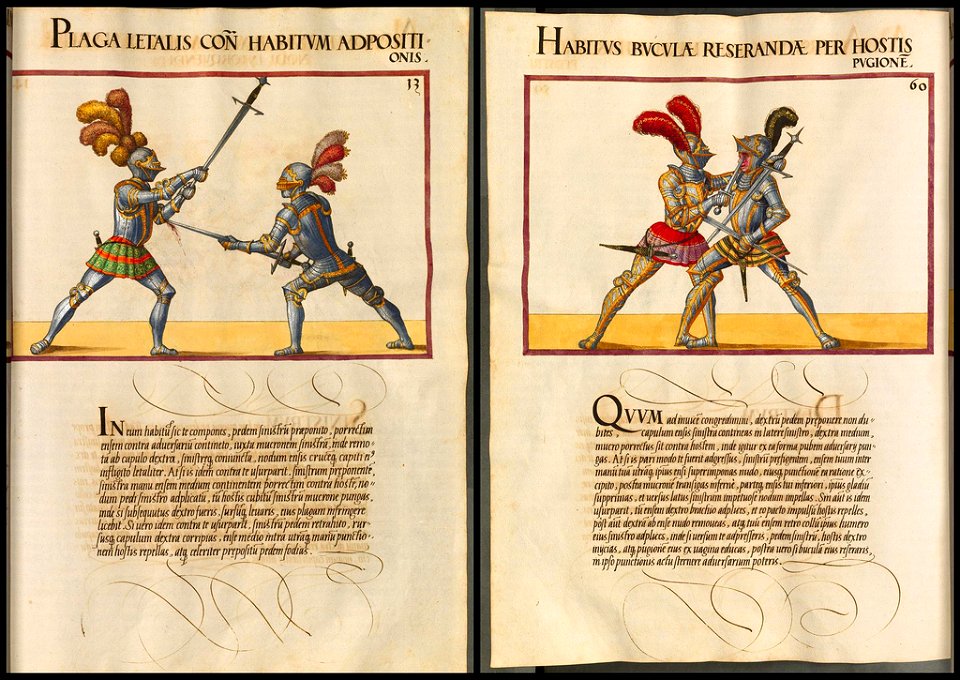 PLAGA LETALIS COÑ HABITVM ADPOSITI-
ONIS.
13
IN eum habitũ sic te compones, pedem sinistrũ præponito, porrectum
ensem contra adversariũ contineto, iuxta mucronem sinistrã, inde remo-
ta ab capulo dextra, sinistræq̃ coniuncta, nodum ensis cruceq̃ capiti
infligito letaliter. At si is idem contra te usurparit, sinistrum præponente,
sinistra manu ensem medium continentem porrectim contra hostẽ, no-
dum pedi sinistro adplicatũ, tũ hostis cubitũ sinistrũ mucrone pungas,
inde si subsequutus dextro fueris, sursũq̃ levaris, eius plagam infringere
licebit. Si vero idem contra te usurparit, sinistrũ pedem retrahito, rur-
susq̃ capulum dextra corripias, ense medio intra utraq̃ manũ punctio-
nem hostis repellas, atq̃ celeriter præpositũ pedem fodias.
HABITVS BVCVLÆ RESERANDÆ PER HOSTIS
PVGIONẼ.
60
QVVM ad invicẽ congredimini, dextrũ pedem præponere non du-
bites, capulum ensis sinistra contineas in latere sinistro, dextra medium,
mucro porrectus sit contra hostem, inde igitur ex ea forma pubem adversarÿ pun-
gas. At si is pari modo te fuerit adgressus, sinistrũ præfigentem, ensem tuum inter
manũ tuã utraq̃, ipsius ensi superimponas nudo, eiusq̃ punctionẽ ea ratione ex-
cipito, postea mucronẽ transigas infernẽ, parteq̃ ensis tui inferiori, ipsius gladiũ
supprimas, et versus latus sinistrum impetuose nodum impellas. Sin aũt is idem
usurparit, tu ensem dextro brachio adplices, et eo pacto impulsũ hostis repelles,
post aũt dextrã ab ense nudo removeas, atq̃ tuũ ensem retro colli ipsius humero
eius sinistro adplices, inde si versum te adpresseris, pedem sinistrũ, hostis dextro
inÿcias, atq̃ pugionẽ eius ex vagina educas, postea vero si buculã eius reseraris,
in ipso punctionis actu sternere adversarium poteris.